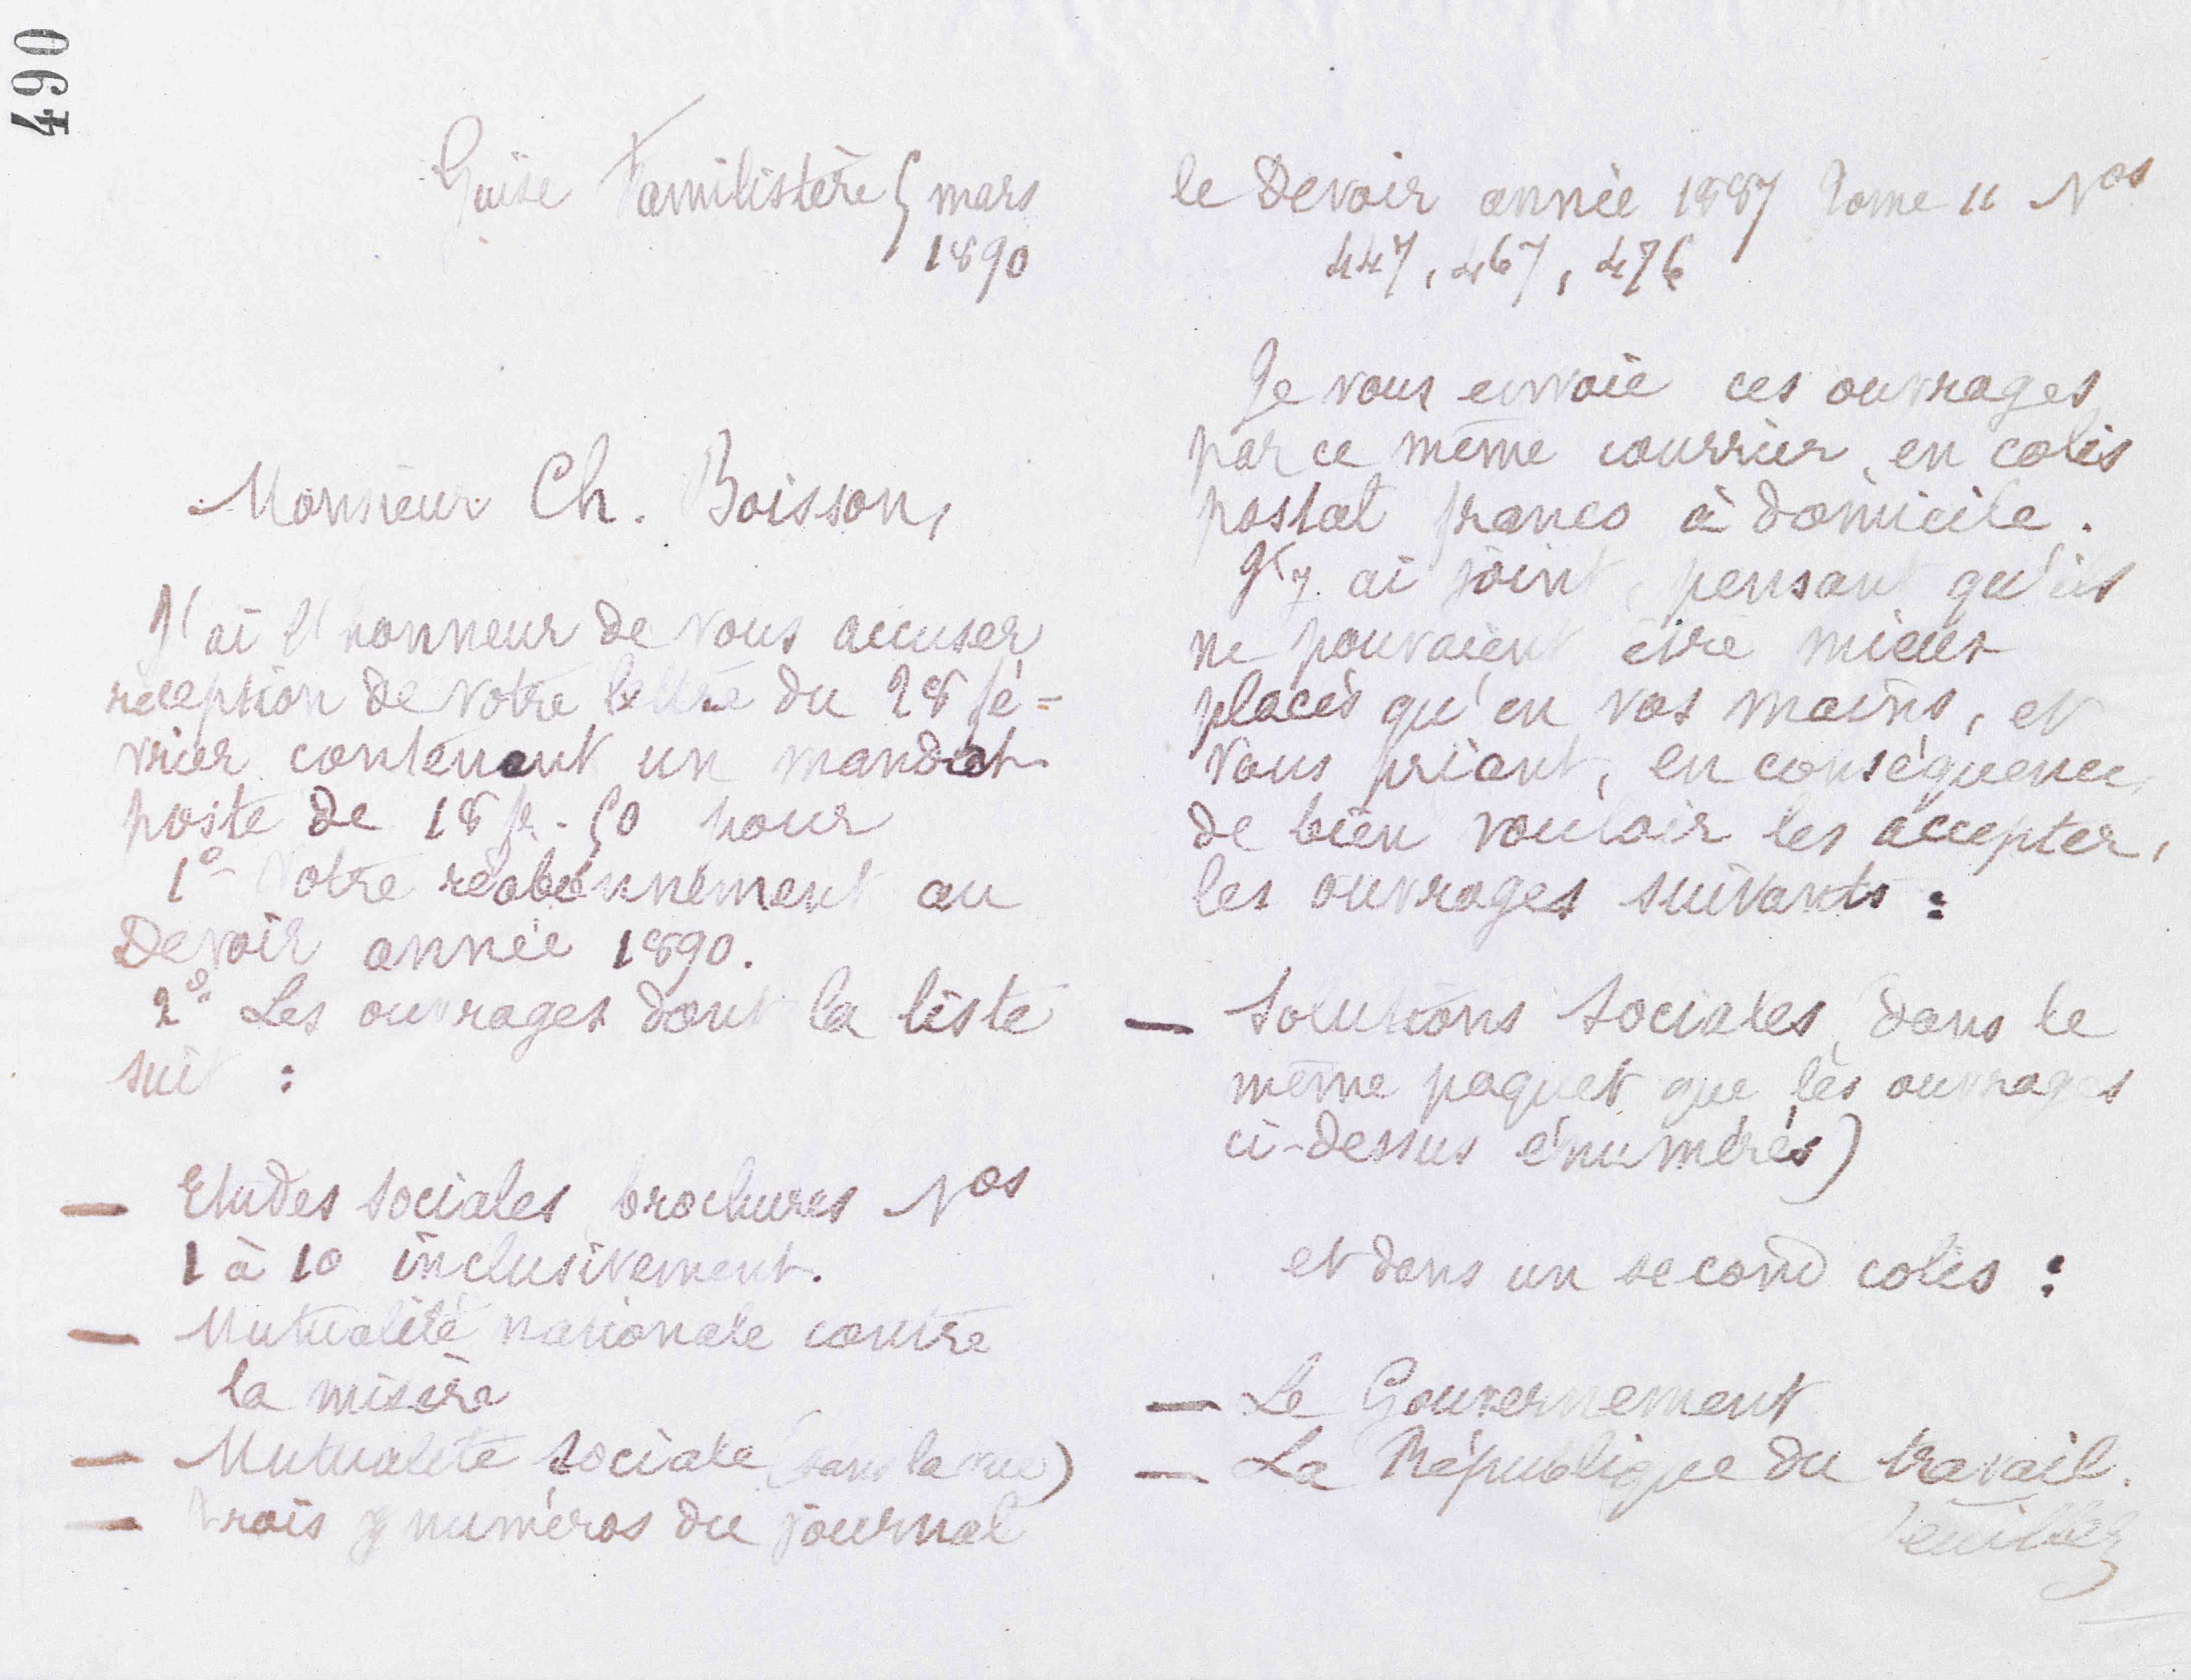 490
Guise Familistère 5 mars
1890
Monsieur Ch. Boisson,
J'ai l'honneur de vous accuser
réception de votre lettre du 28 fé-
vrier contenant un mandat
poste de 18 fr. 50 pour
1° Votre réabonnement au
Devoir année 1890.
2° Les ouvrages dont la liste
suit :
— Etudes sociales brochures Nos
1 à 10 inclusivement.
— Mutualité nationale contre
la misère
— Mutualité sociale (sans la vue)
— trois numéros du journal
le Devoir année 1887 Tome 11 Nos
447, 467, 476
Je vous envoie ces ouvrages
par ce même courrier, en colis
postal franco à domicile.
J'y ai joint, pensant qu'ils
ne pouvaient être mieux
placés qu'en vos mains, et
vous priant, en conséquence,
de bien vouloir les accepter,
les ouvrages suivants :
— Solutions sociales (dans le
même paquet que les ouvrages
ci-dessus énumérés)
et dans un second colis :
— Le Gouvernement
— La République du travail.
Veuillez